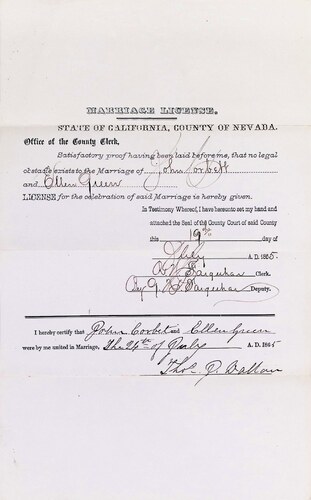 MARRIAGE LICENSE.
STATE OF CALIFORNIA, COUNTY OF NEVADA.
Office of the County Clerk,
Satisfactory proof having been laid before me, that no legal
obstacle exists to the Marriage of John Corbett
and Ellen Green
LICENSE for the celebration of said Marriage is hereby given.
In Testimony Whereof, I have hereunto set my hand and
attached the Seal of the County Court of said County
this 19th day of
July A. D. 1865
Farquhar Clerk.
By G. Farquhar Deputy.
I hereby certify that John Corbet and Ellen Green
were by me united in Marriage, The 24th of July A. D. 1865
Thos. J. Dalton